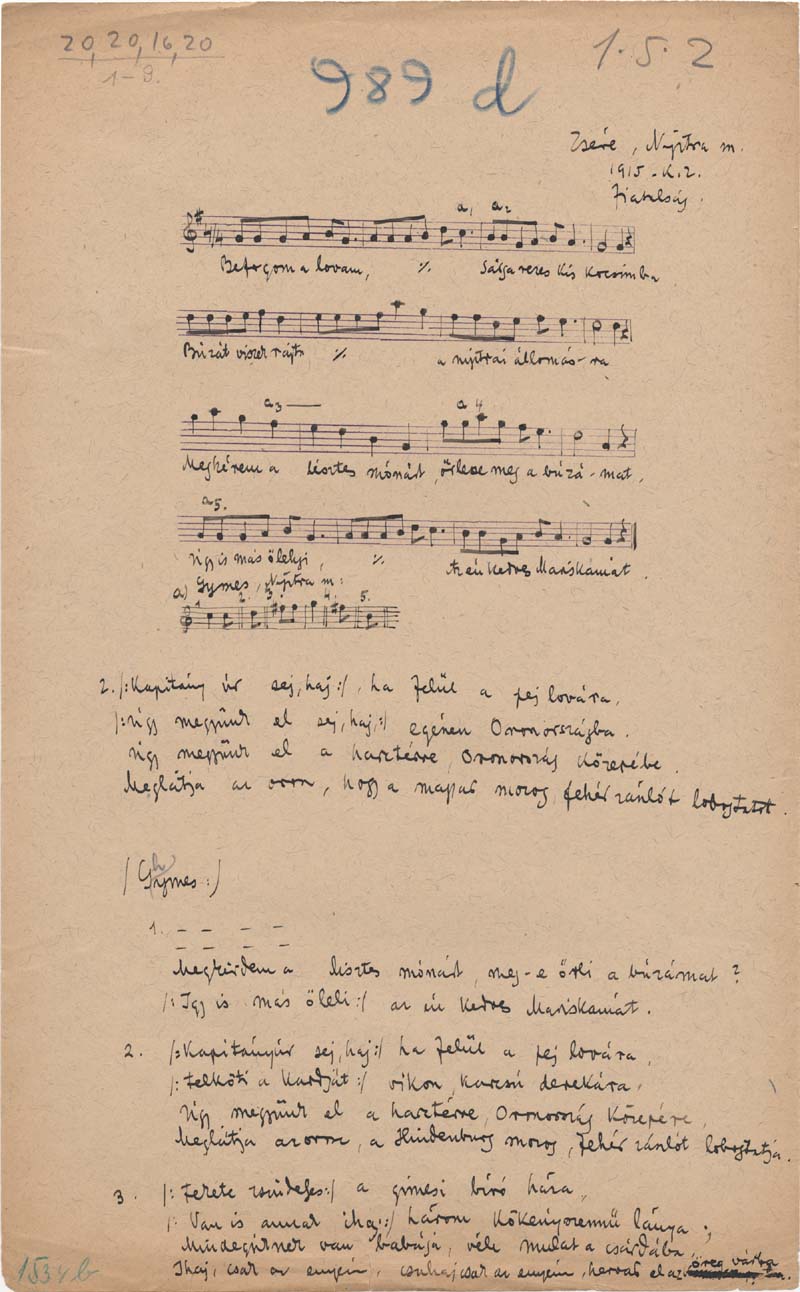 20, 20, 16, 20
1-9.
989 d
1.5.2
Zsére, Nyitra m.
1915. K.2.
Fiatalság.
a1 a2
Befogom a lovam, ·/. Sárga veres kis kocsimba
Búzát viszek rajta ·/. a nyitrai állomás-ra
a3 a4
Megkérem a lisztes mónárt, őrlese meg a búzá-mat,
a5.
Úgy is más öleli, ·/. Az én kedves Mariskámat.
a) Gymes, Nyitra m:
2. 3. 4. 5.
2. /:Kapitány úr sej, haj:/, ha felül a pej lovára,
/:Úgy megyünk el sej, haj,:/ egénen Oroszországba.
Úgy megyünk el a harctérre, Oroszország közepébe.
Meglátja az orosz, hogy a magyar mozog, fehér zászlót lobogtatot.
/Ghymes:/
1. – – – –
– – – –
Megkérdem a lisztes mónárt, meg-e őrli a búzámat?
/:Igy is más öleli:/ az én kedves Mariskámat.
2. /:Kapitányúr sej, haj:/ ha felül a pej lovára,
/:Felköti a kardját:/ vékon, karcsú derekára,
Úgy megyünk el a harctérre, Oroszország közepére,
Meglátja az orosz, a Hindenburg mozog, fehér zászlót lobogtatja.
3. /:Fekete zsindeles:/ a gimesi bíró háza,
/:Van is annak ihaj:/ három kökényszemű lánya;
Mindegyiknek van babája, véle mulat a csárdába,
Ihaj, csak az enyém, csuhaj csak az enyém, hervad el az öreg várba.
1534b